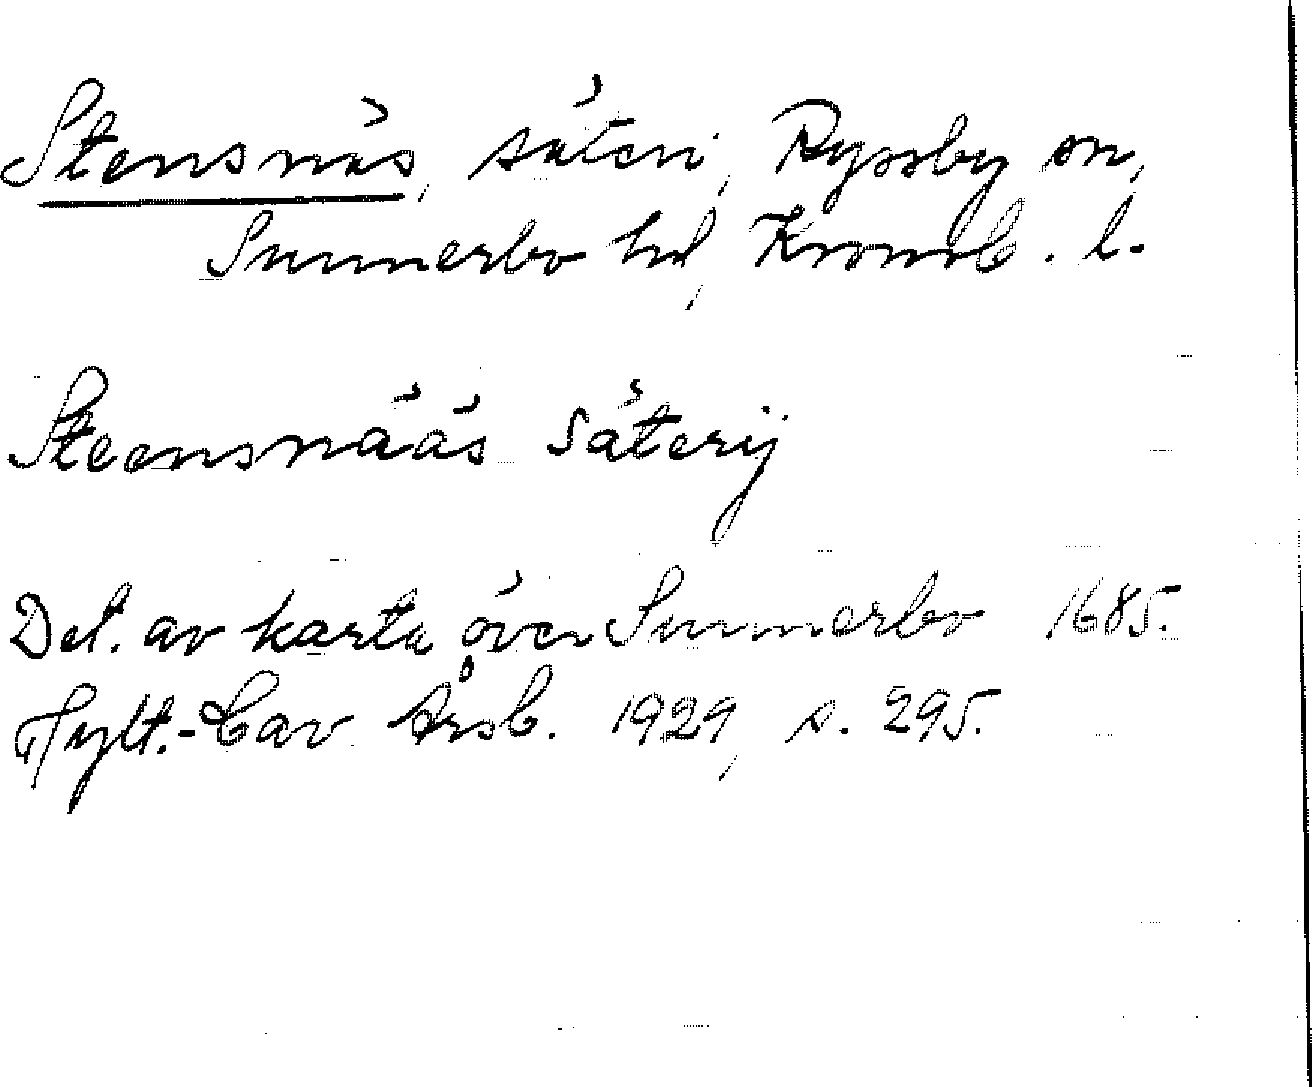 Stensnäs, säteri, Ryssby sn,
Sunnerbo hd, Kronob. l.
Steensnääs Säterij
Det. av karta över Sunnerbo 1685.
Hylt.-Cav Årsb. 1929, s. 295.